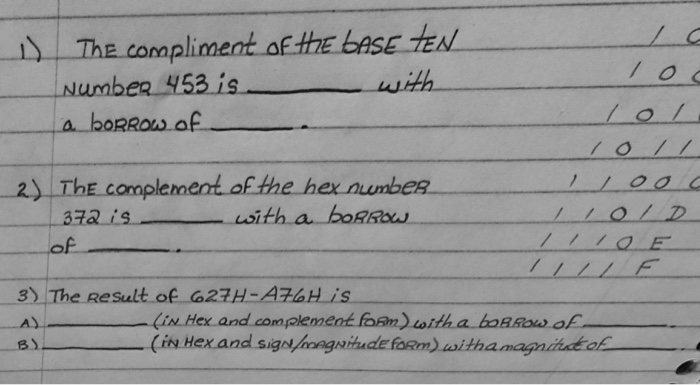 1) The compliment of the base ten
number 453 is ______ with
a borrow of ______.
2) The complement of the hex number
372 is ______ with a borrow
of ______.
3) The Result of 627H-A76H is
A) ______ (in Hex and complement form) with a borrow of ______
B) ______ (in Hex and sign/magnitude form) with a magnitude of ______
1 0
1 0 0
1 0 1
1 0 1 1
1 1 0 0 C
1 1 0 1 D
1 1 1 0 E
1 1 1 1 F